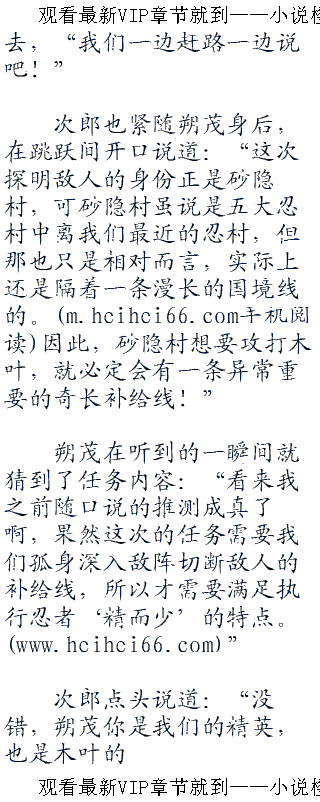 观看最新VIP章节就到——小说检
去，“我们一边赶路一边说
吧！”
次郎也紧随朔茂身后，
在跳跃间开口说道：“这次
探明敌人的身份正是砂隐
村，可砂隐村虽说是五大忍
村中离我们最近的忍村，但
那也只是相对而言，实际上
还是隔着一条漫长的国境线
的。(m.hcihci66.com手机阅
读)因此，砂隐村想要攻打木
叶，就必定会有一条异常重
要的奇长补给线！”
朔茂在听到的一瞬间就
猜到了任务内容：“看来我
之前随口说的推测成真了
啊，果然这次的任务需要我
们孤身深入敌阵切断敌人的
补给线，所以才需要满足执
行忍者‘精而少’的特点。
(www.hcihci66.com)”
次郎点头说道：“没
错，朔茂你是我们的精英，
也是木叶的
观看最新VIP章节就到——小说检